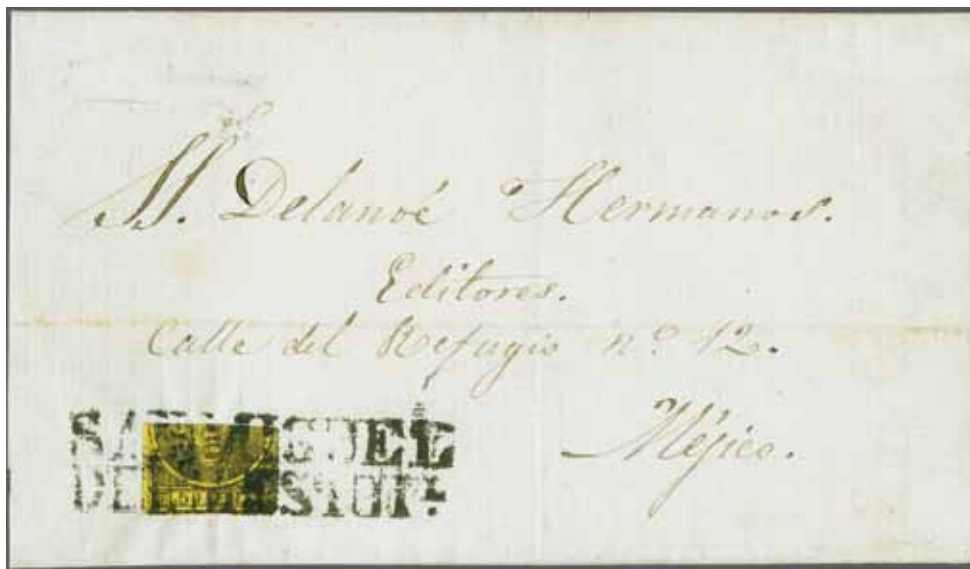 SS. Delanoé Hermanos.
Editores.
Calle del Refugio nº 12.
Méjico.